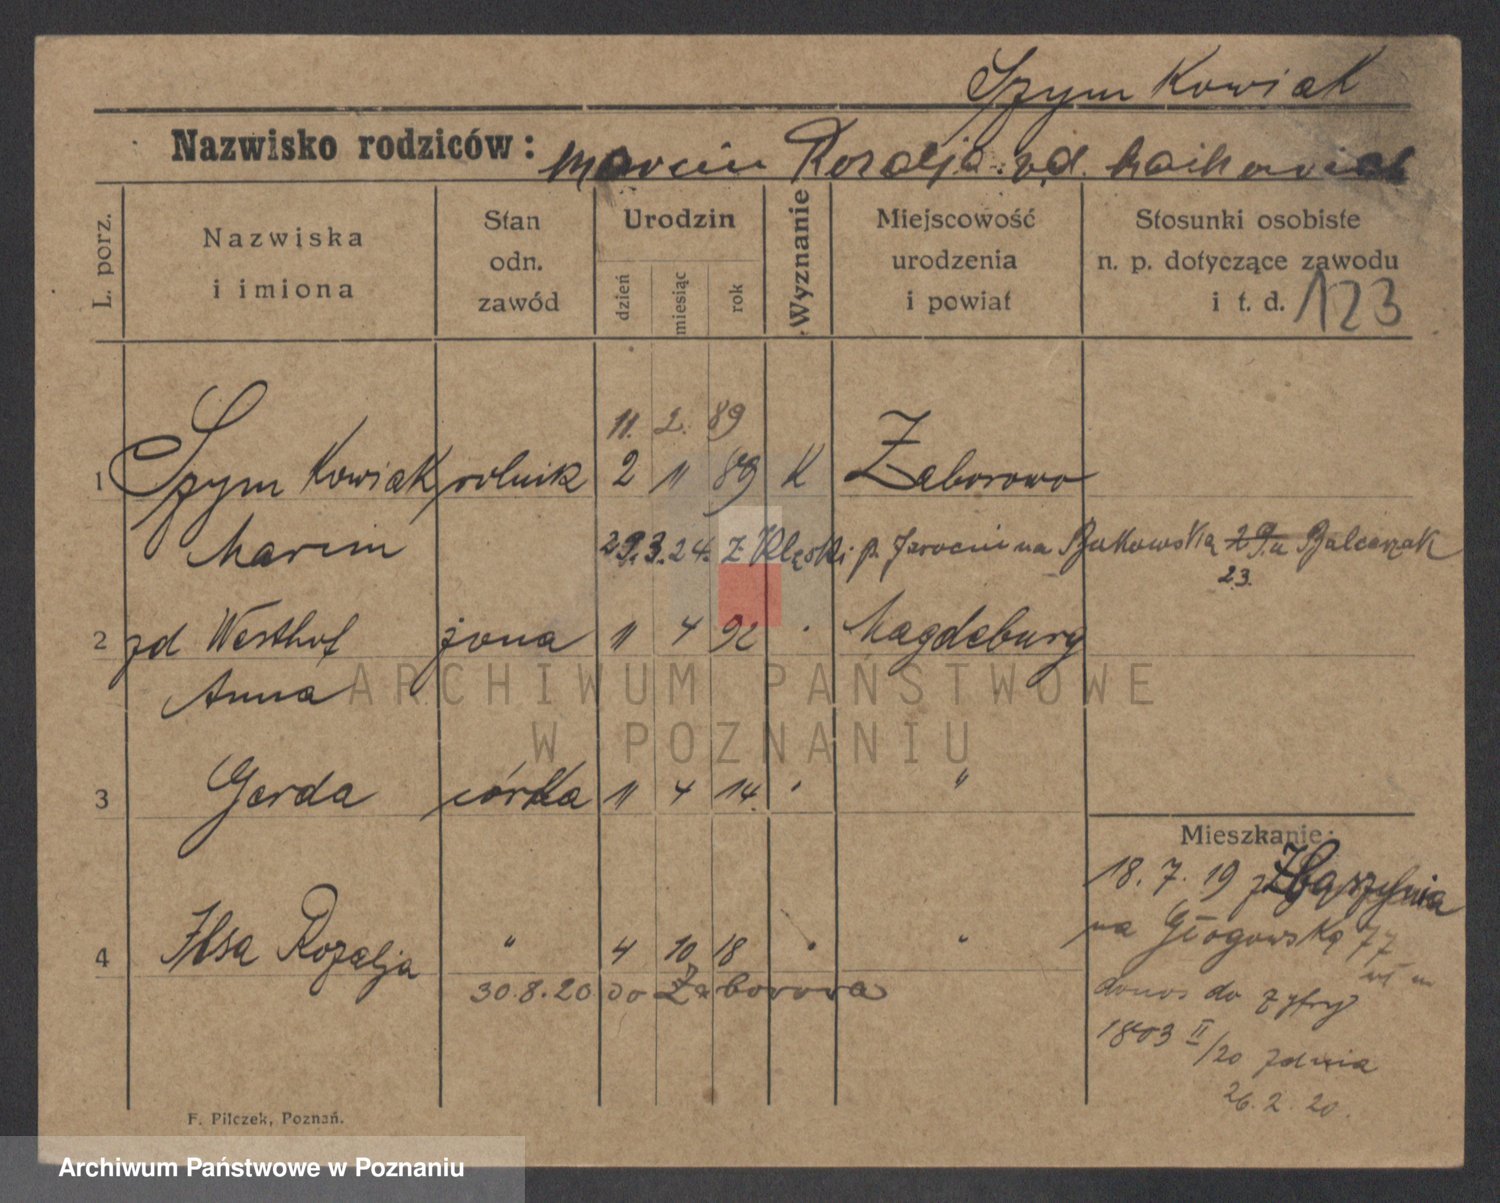 Szymkowiak
Nazwisko rodziców: Marcin Rozalja zd. Maihowiak
L. porz.
Nazwiska
i imiona
Stan
odn.
zawód
Urodzin
dzień
miesiąc
rok
Wyznanie
Miejscowość
urodzenia
i powiat
Stosunki osobiste
n. p. dotyczące zawodu
i t. d. 123
11. 2. 89
1 Szymkowiak rolnik 2 11 89 K Zaborowo
Marcin 29.3.24. z Klęski p. Jarocin na Bukowską 29.a Balcerzak
23.
2 zd Westhof żona 11 4 92 Magdeburg
Anna
3 Gerda córka 11 4 14. "
4 Ilsa Rozalja " 4 10 18 "
30.8.20 do Zaborova
Mieszkanie:
18.7.19 z Zbąszynia
na Głogowską 77
donos do
1803 II/20 z dnia
26.2.20.
F. Pilczek, Poznań.
ARCHIWUM PAŃSTWOWE
W POZNANIU
Archiwum Państwowe w Poznaniu